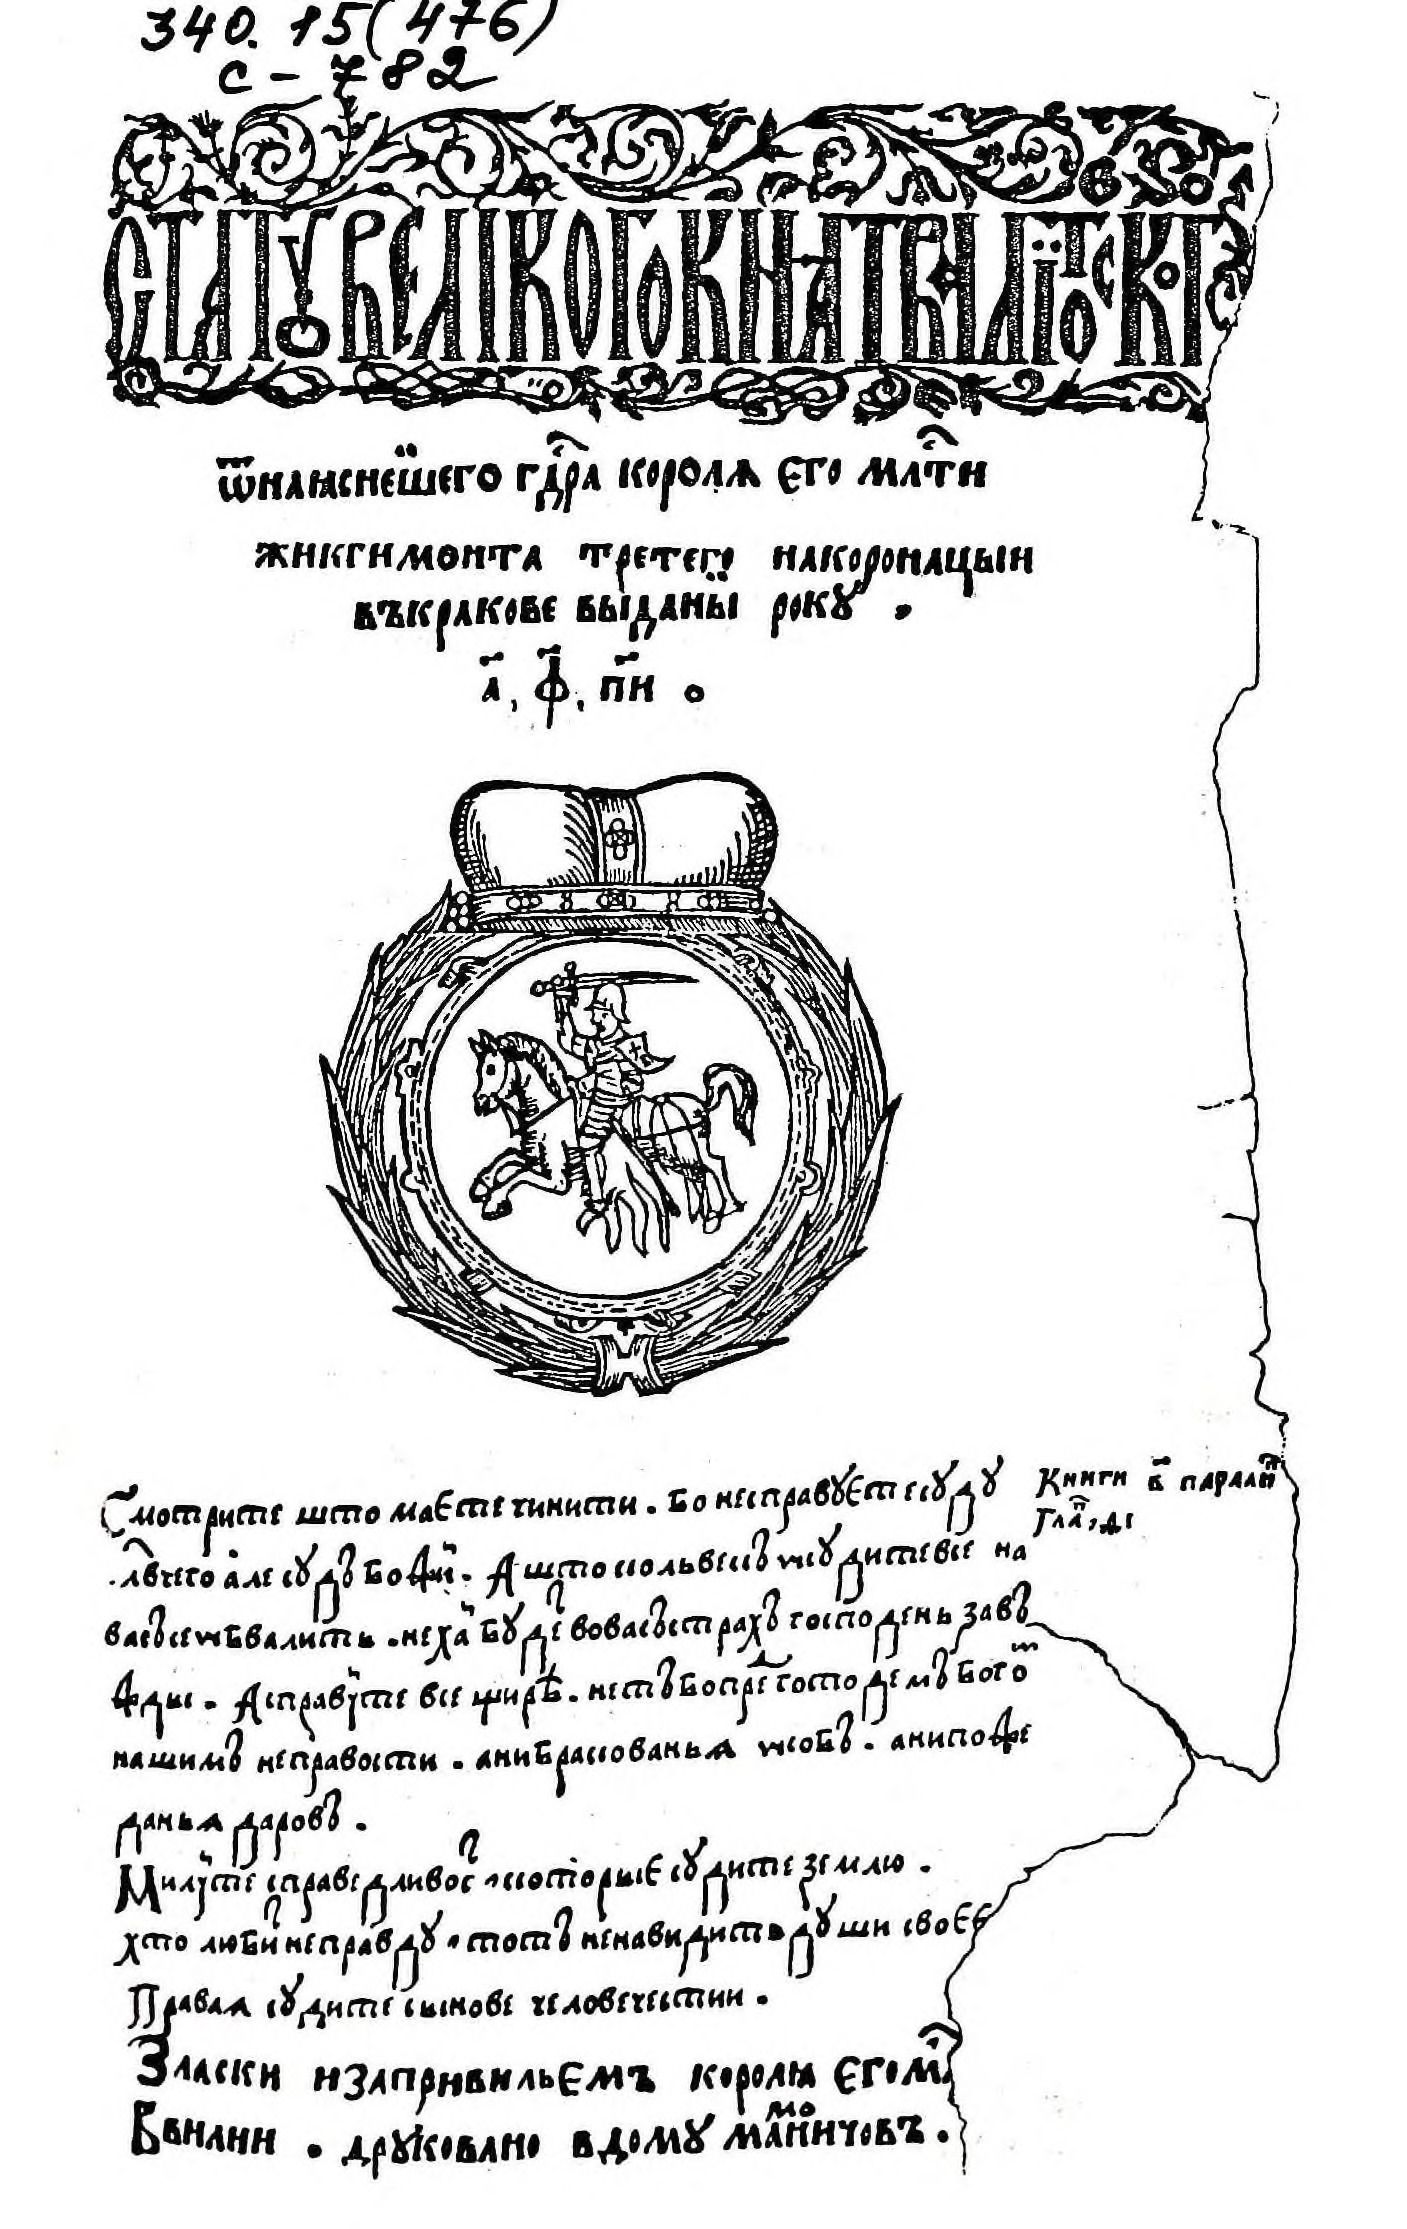 340.15(476)
С-782
СТАТУТ ВЕЛИКОГО КНЯЗТВА ЛИТОВСКОГО
ѿ наꙗснейшего гдра короля его млти
жикгимонта третего на коронацыи
въ кракове выданый року ,
а҃, ф҃, пи҃ .
Смотрите што маєте чинити . бо не справуєте суду
але судъ божий . А што кольвекъ судите все на
васъ се ѡбвалить . нехай будеть во васъ страхъ господень завъ
жды . А справуйте все щире . нетъ бо пред господемъ богом
нашимъ неправости . ани бракованья ѡсобъ . ани пожа
данья даровъ .
Милуйте справедливость которыє судите землю .
хто любить неправду , тотъ ненавидить души своєє
Правая судите сынове человечестии .
Книги в҃ паралип
Гла҃, ѳі
З ласки и за привильємъ короля єго м
В вилни . друковано в дому мамоничовъ .